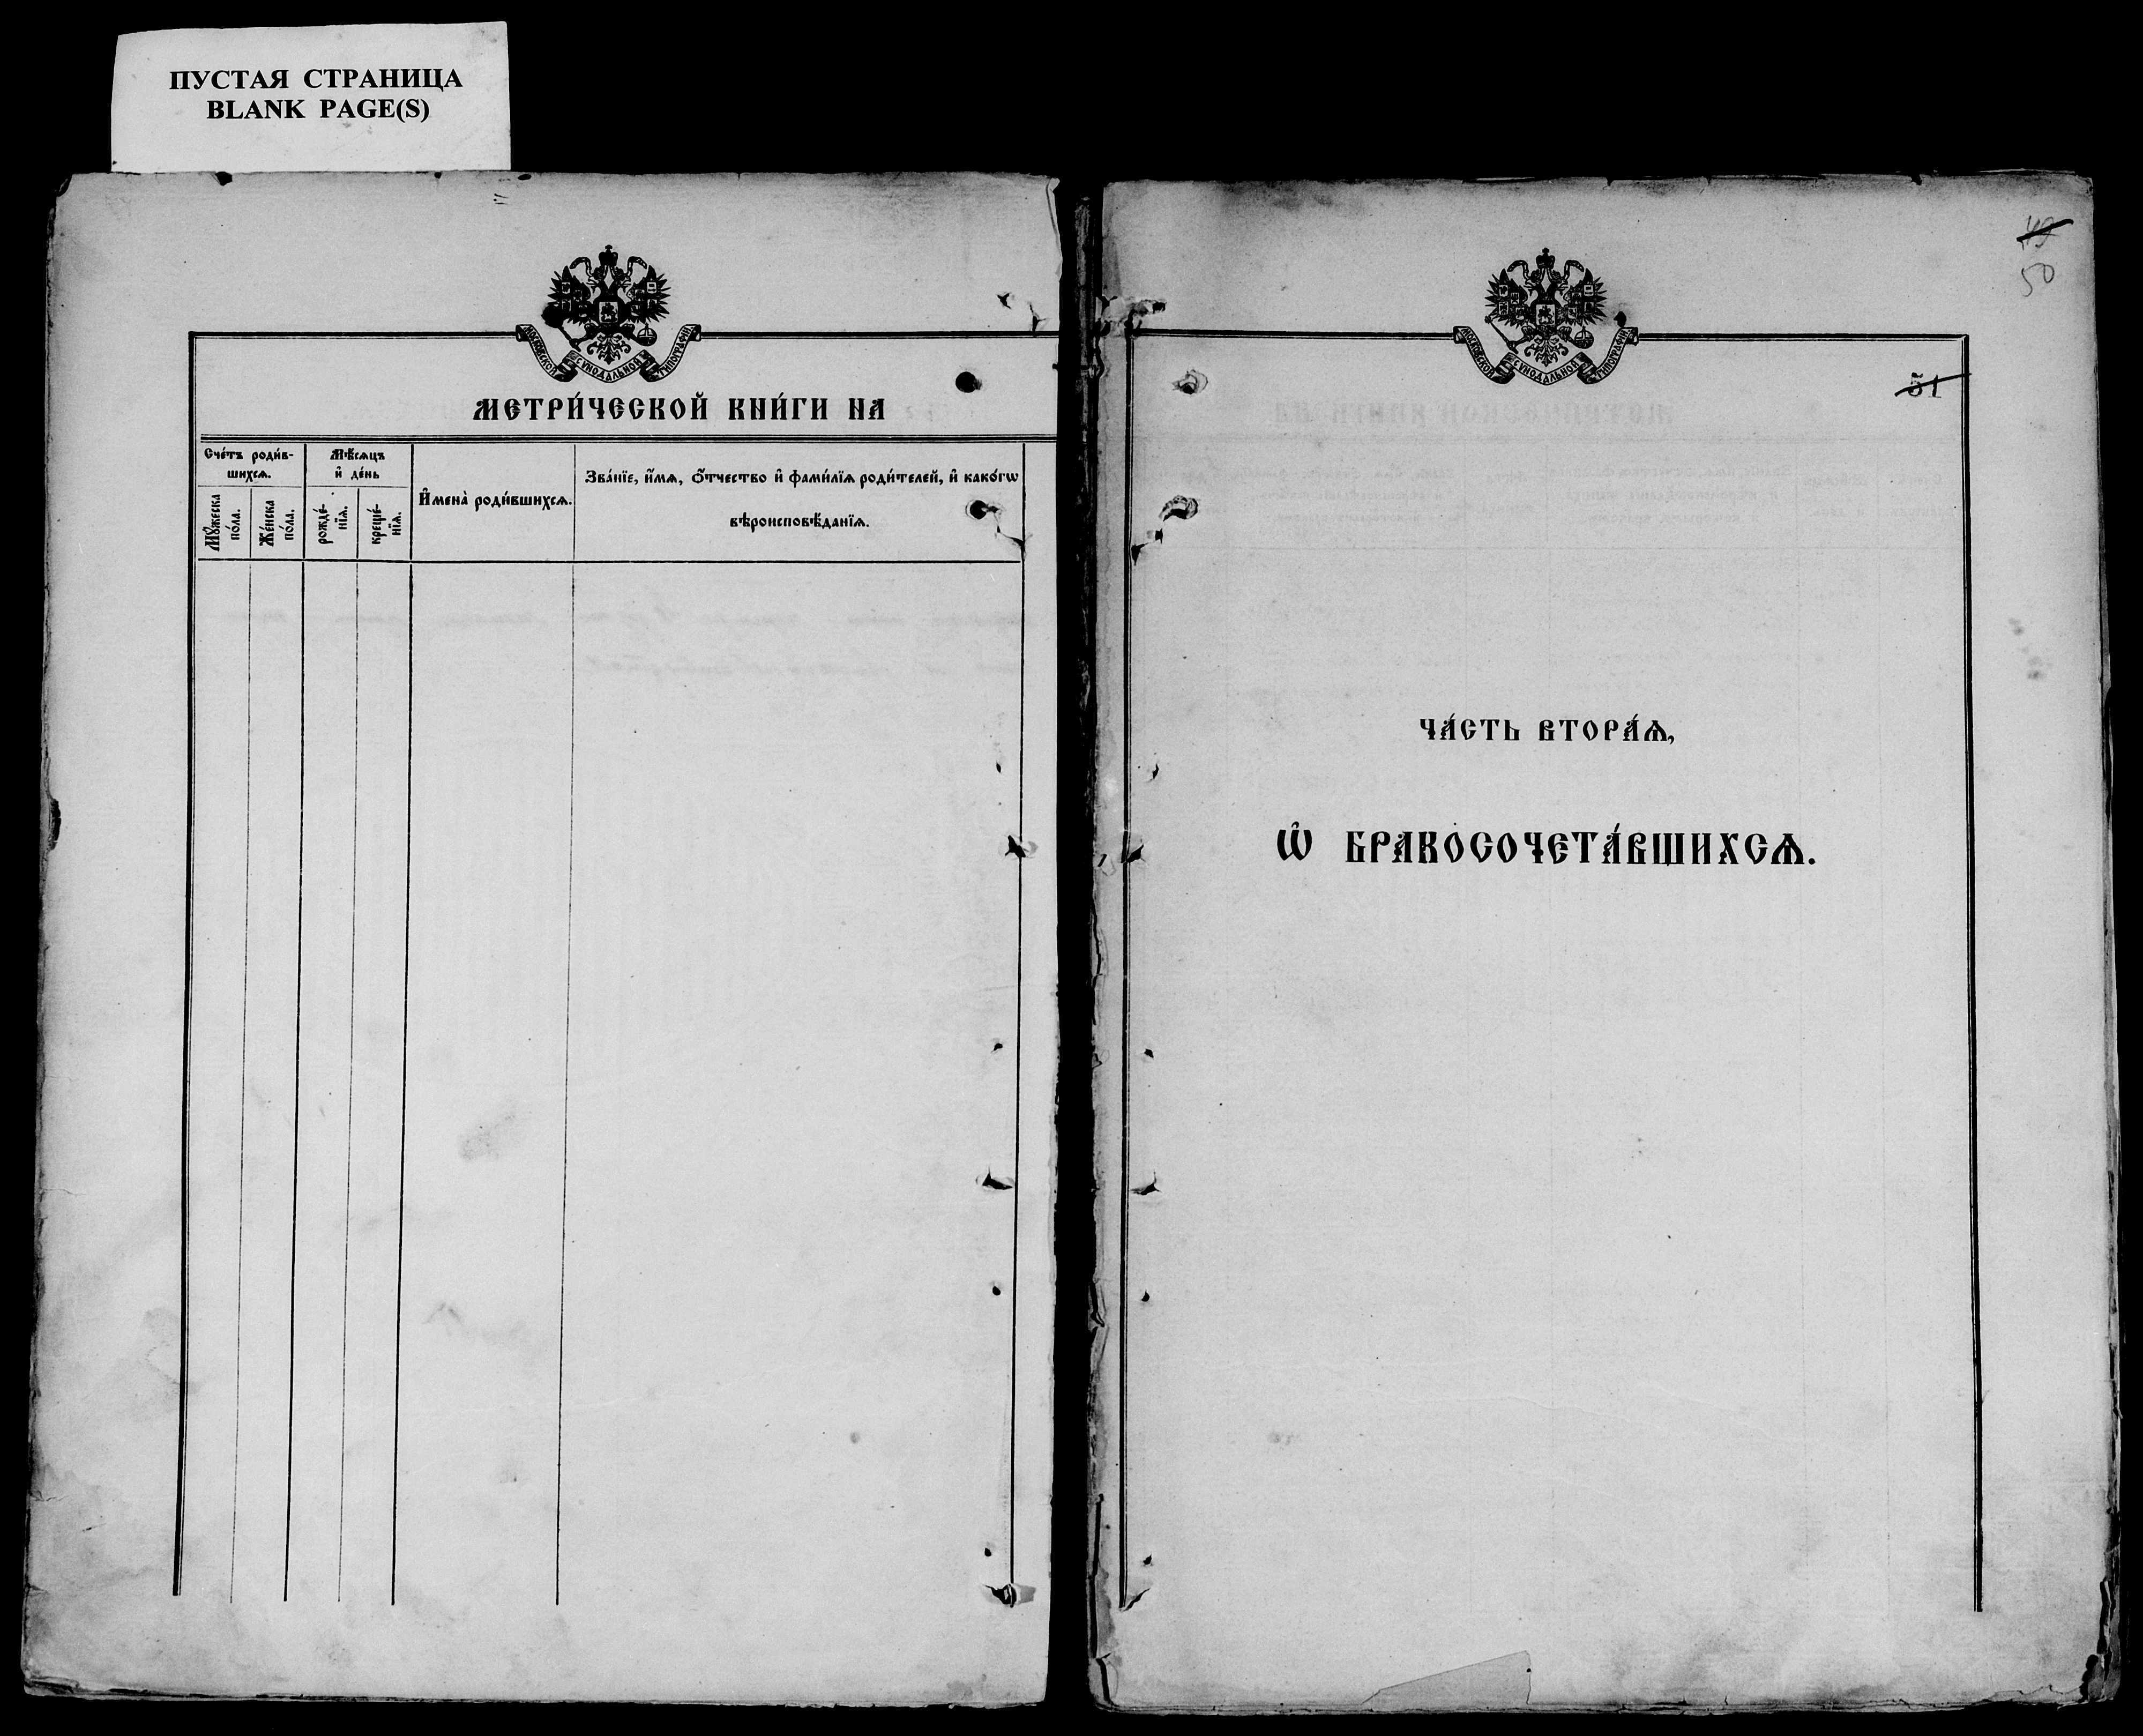 ПУСТАЯ СТРАНИЦА
BLANK PAGE(S)
МОСКОВСКОЙ СѴНОДАЛЬНОЙ ТИПОГРАФІИ
МЕТРИ́ЧЕСКОЙ КНИ́ГИ НА
Сче́тъ роди́в-
шихсѧ.
Мѣ́сѧцъ
и҆ де́нь
И҆мена̀ роди́вшихсѧ.
Зва́нїе, и҆́мѧ, ѻ҆́тчество и҆ фами́лїѧ роди́телей, и҆ како́гѡ
вѣроисповѣ́данїѧ.
Мꙋ́жеска
по́ла.
Же́нска
по́ла.
рожде́-
нїѧ.
креще́-
нїѧ.
49
50
МОСКОВСКОЙ СѴНОДАЛЬНОЙ ТИПОГРАФІИ
51
ЧА́СТЬ ВТОРА́Ѧ,
Ѡ҆ БРАКОСОЧЕТА́ВШИХСѦ.